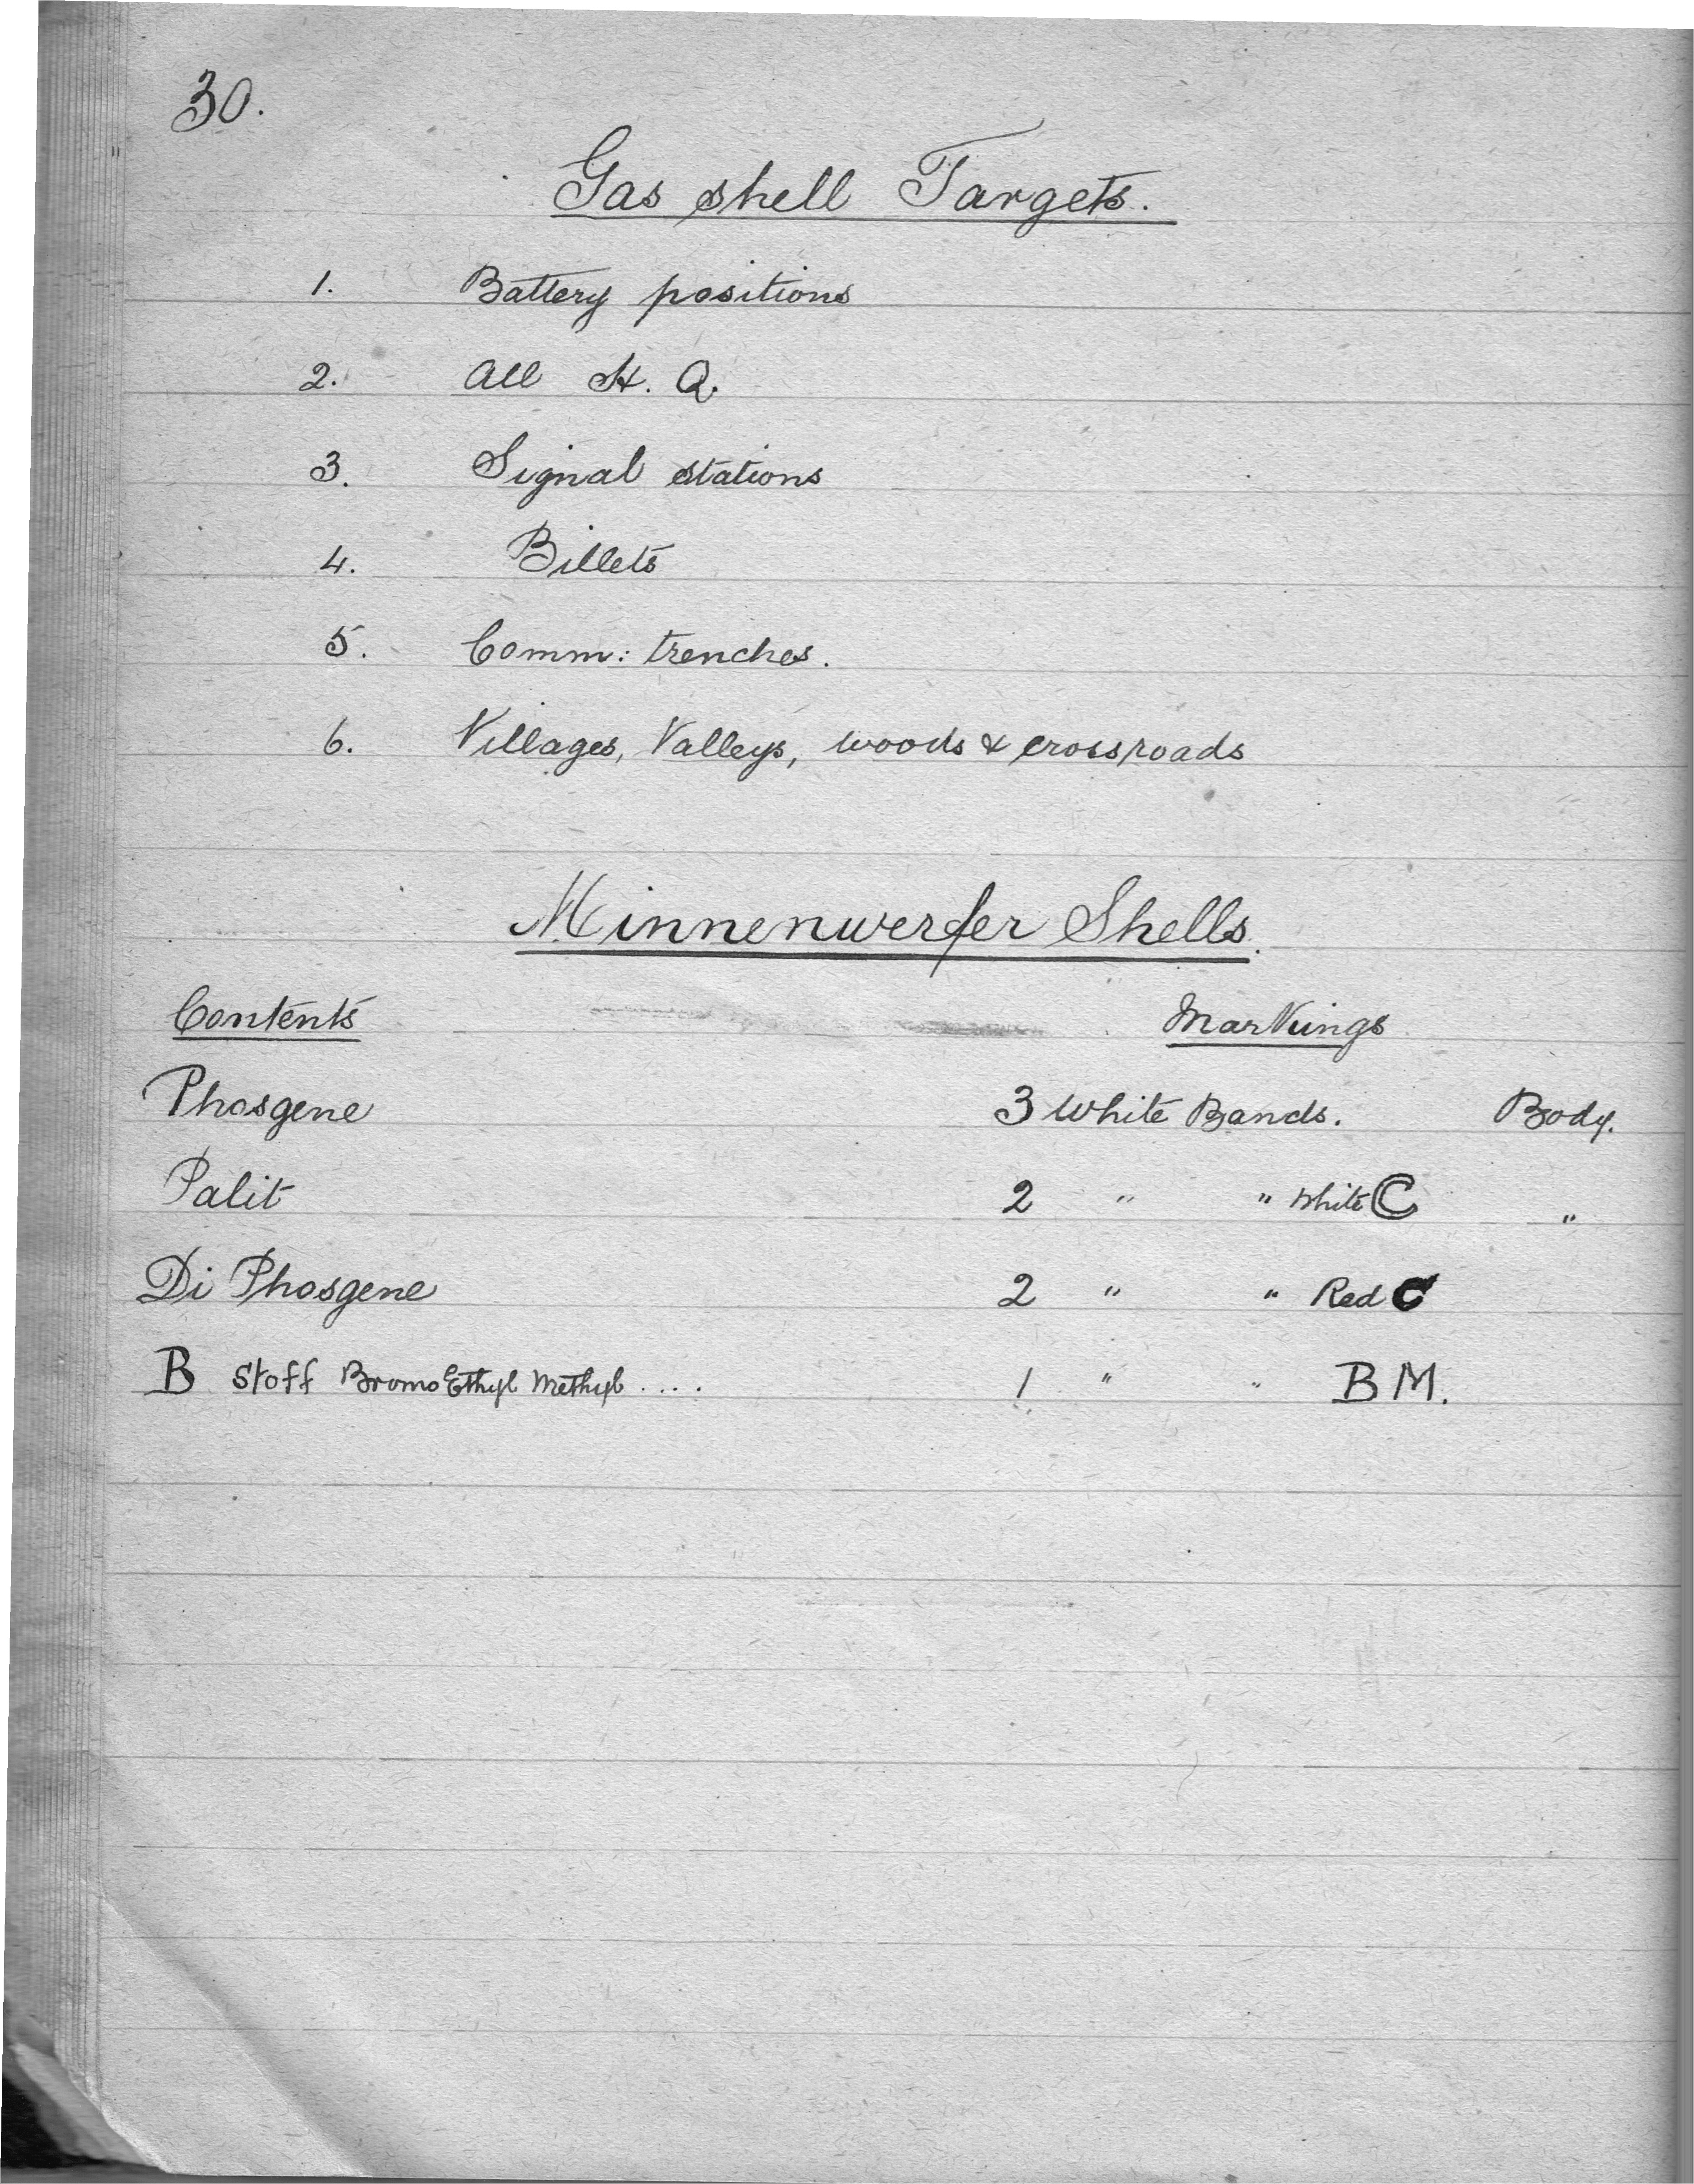 30.
Gas shell Targets.
1. Battery positions
2. All H. Q.
3. Signal stations
4. Billets
5. Comm: trenches.
6. Villages, Valleys, woods & crossroads
Minnenwerfer Shells.
Contents Markings
Phosgene 3 White Bands. Body.
Palit 2 " " White C "
Di Phosgene 2 " " Red C
B Stoff Bromo Ethyl Methyl .... 1 " " B M.